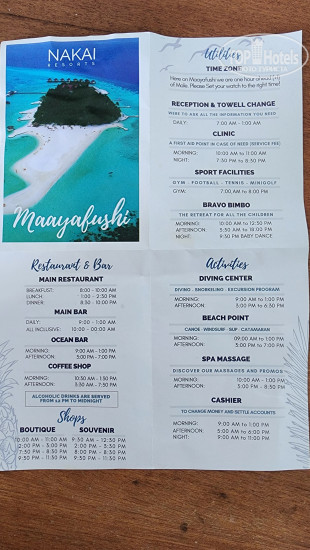 NAKAI
RESORTS
Maayafushi
Restaurant & Bar
MAIN RESTAURANT
BREAKFAST: 8:00 - 10:00 AM
LUNCH: 1:00 - 2:30 PM
DINNER: 8:30 - 10:00 PM
MAIN BAR
DAILY: 9:00 - 1:00 AM
ALL INCLUSIVE: 10:00 - 00:00 AM
OCEAN BAR
MORNING: 9:00 AM - 1:00 PM
AFTERNOON: 5:00 PM - 7:00 PM
COFFEE SHOP
MORNING: 10:30 AM - 1:30 PM
AFTERNOON: 3:30 AM - 7:30 PM
ALCOHOLIC DRINKS ARE SERVED
FROM 12 PM TO MIDNIGHT
Shops
BOUTIQUE SOUVENIR
10:00 AM - 11:00 AM 9:30 AM - 12:30 PM
2:00 PM - 3:00 PM 2:30 PM - 5:30 PM
7:30 PM - 8:30 PM 6:00 PM - 8:30 PM
9:30 PM - 11:30 PM 9:30 PM - 11:30 PM
Utilities
TIME ZONE
Here on Maayafushi we are one hour ahead
of Male. Please Set your watch to the right time!
RECEPTION & TOWELL CHANGE
HERE TO ASK ALL THE INFORMATION YOU NEED
DAILY: 7.00 AM - 1:00 AM
CLINIC
A FIRST AID POINT IN CASE OF NEED (SERVICE FEE)
MORNING: 10:00 AM to 11:00 AM
NIGHT: 7:30 PM to 8:30 PM
SPORT FACILITIES
GYM - FOOTBALL - TENNIS - MINIGOLF
GYM: 7:00 AM to 8:00 PM
BRAVO BIMBO
THE RETREAT FOR ALL THE CHILDREN
MORNING: 10:00 AM to 12:00 PM
AFTERNOON: 3:30 AM to 18:00 PM
NIGHT: 9:30 PM BABY DANCE
Activities
DIVING CENTER
DIVING - SNORKELING - EXCURSION PROGRAM
MORNING: 9:00 AM to 1:00 PM
AFTERNOON: 3:00 PM to 6:30 PM
BEACH POINT
CANOE WINDSURF SUP CATAMARAN
MORNING: 09.00 AM to 1:00 PM
AFTERNOON: 3:00 PM to 7:00 PM
SPA MASSAGE
DISCOVER OUR MASSAGES AND PROMOS
MORNING: 10:00 AM - 1:00 PM
AFTERNOON: 3:00 PM to 8:30 PM
CASHIER
TO CHANGE MONEY AND SETTLE ACCOUNTS
MORNING: 9:00 AM to 1:00 AM
AFTERNOON: 5:00 AM to 6:00 PM
NIGHT: 9:00 AM to 11:00 PM